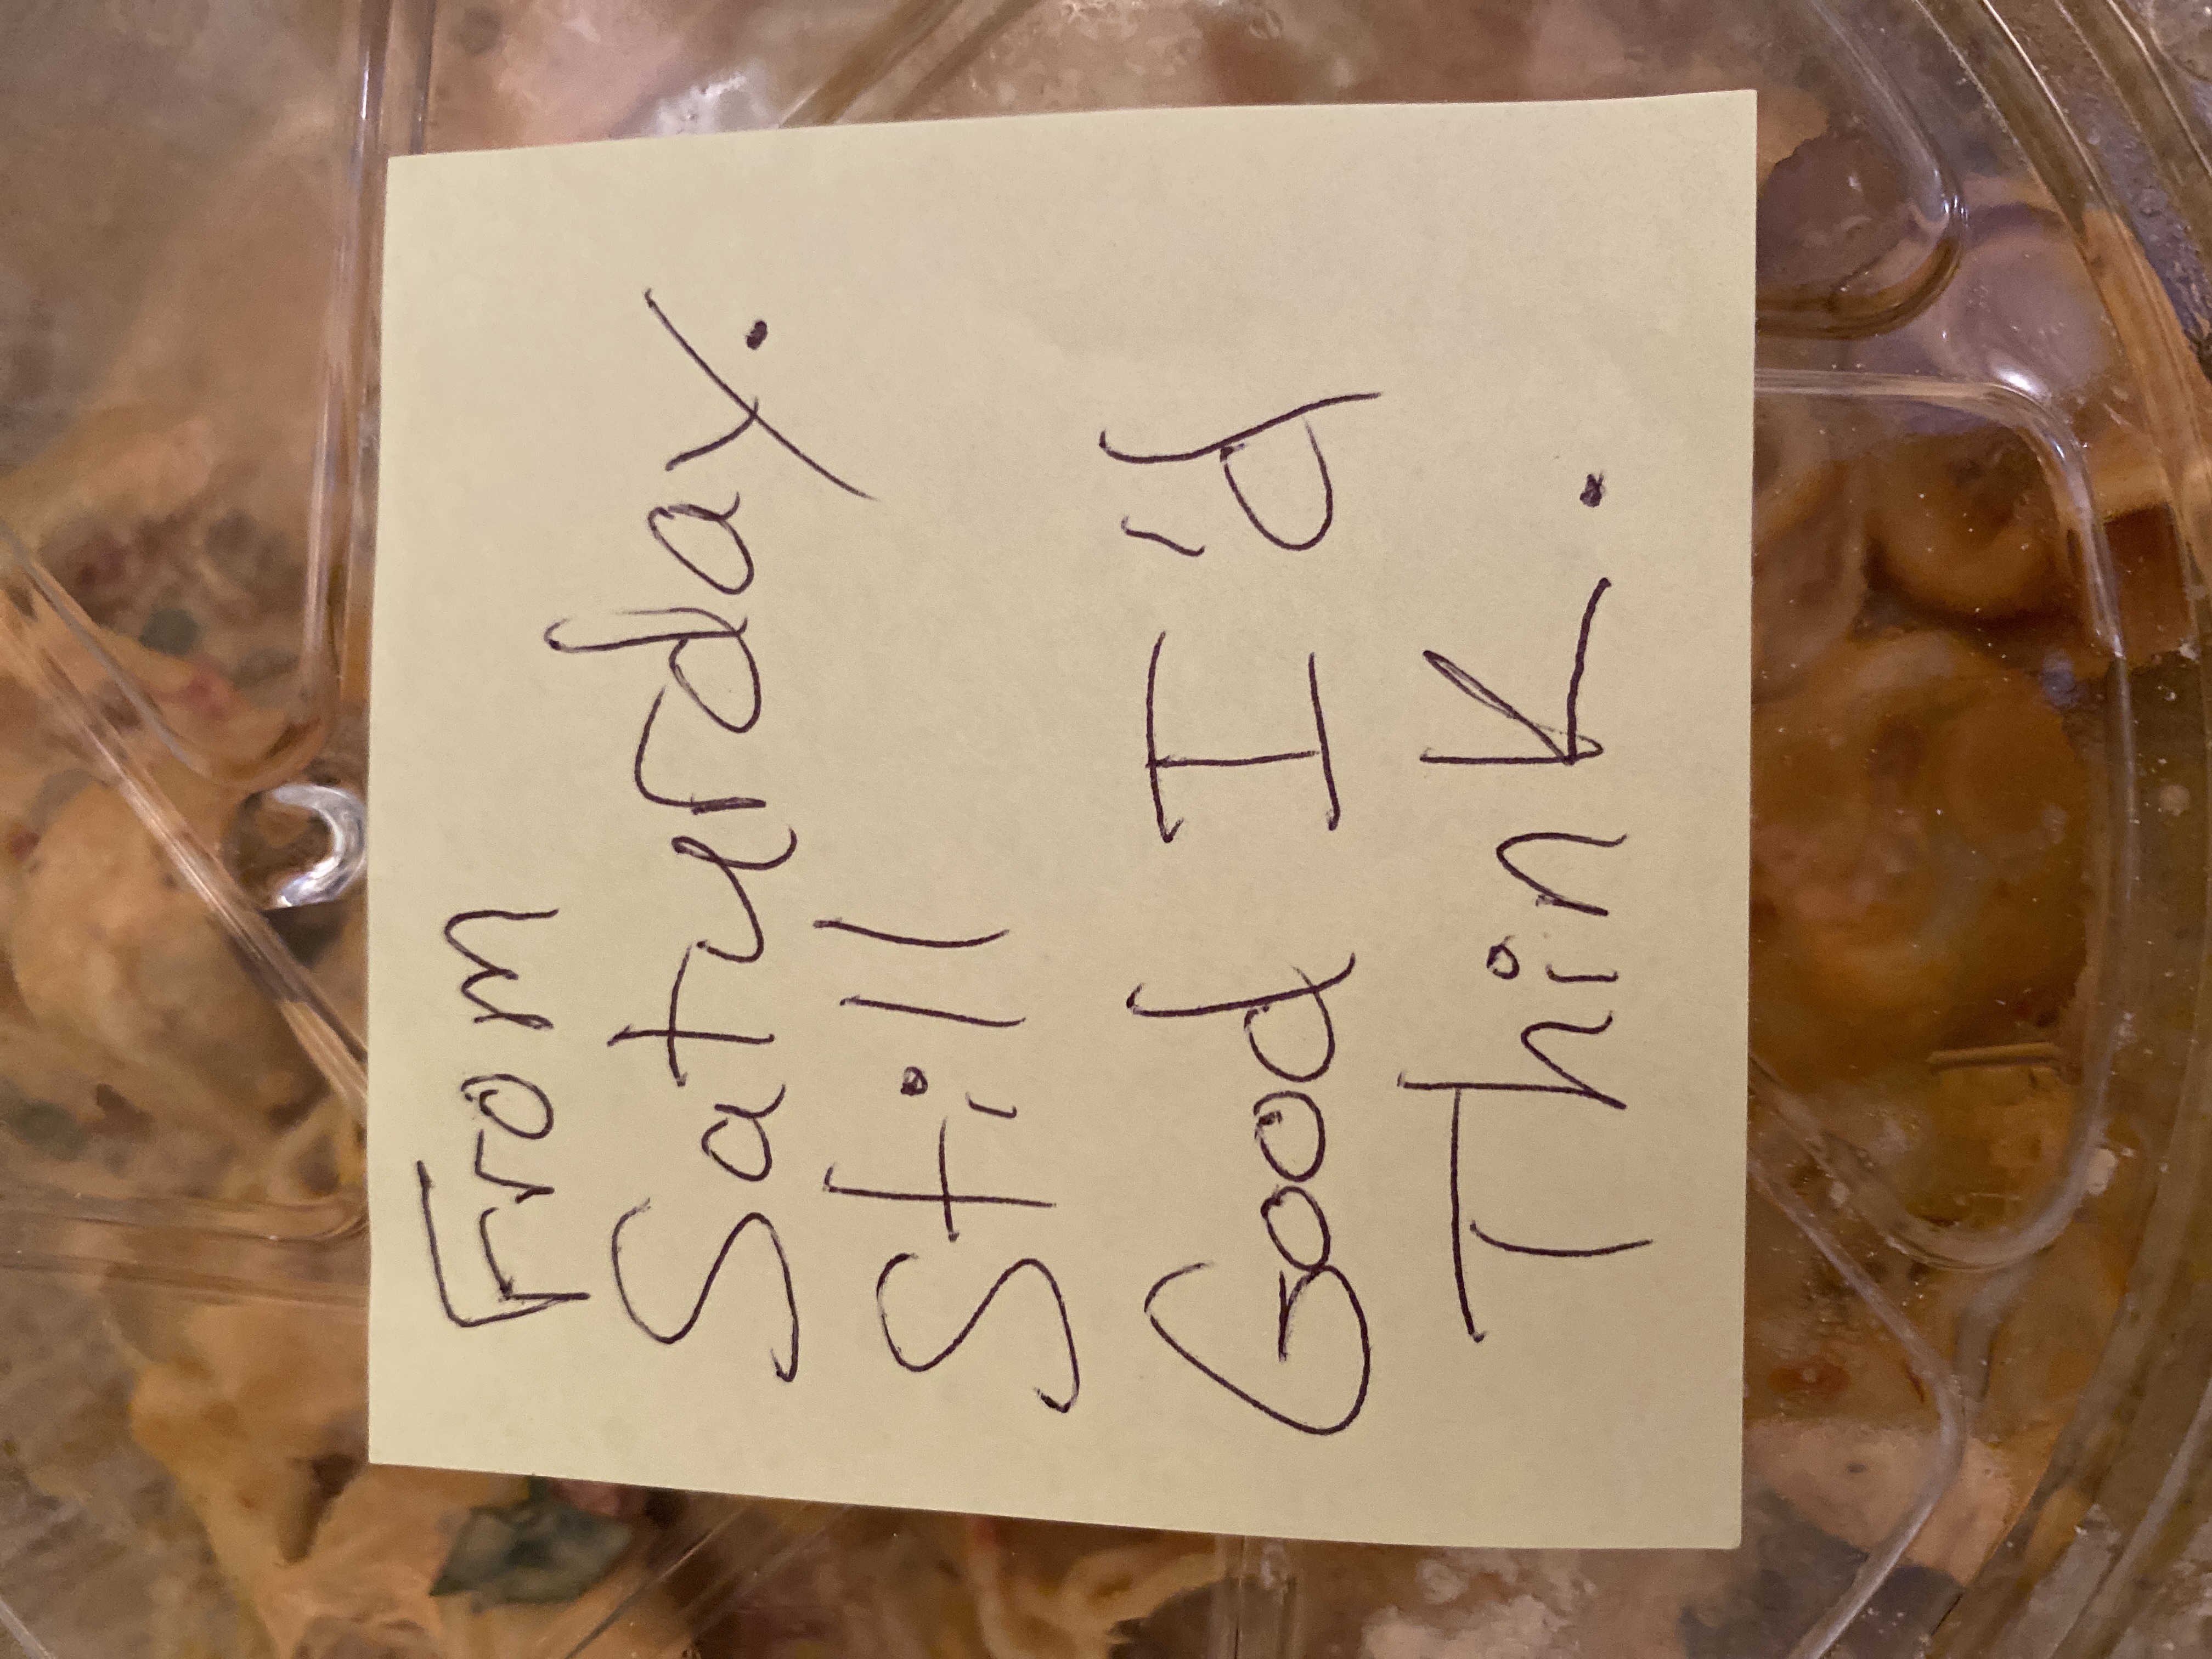 From
Saturday.
Still
Good I'd
Think.